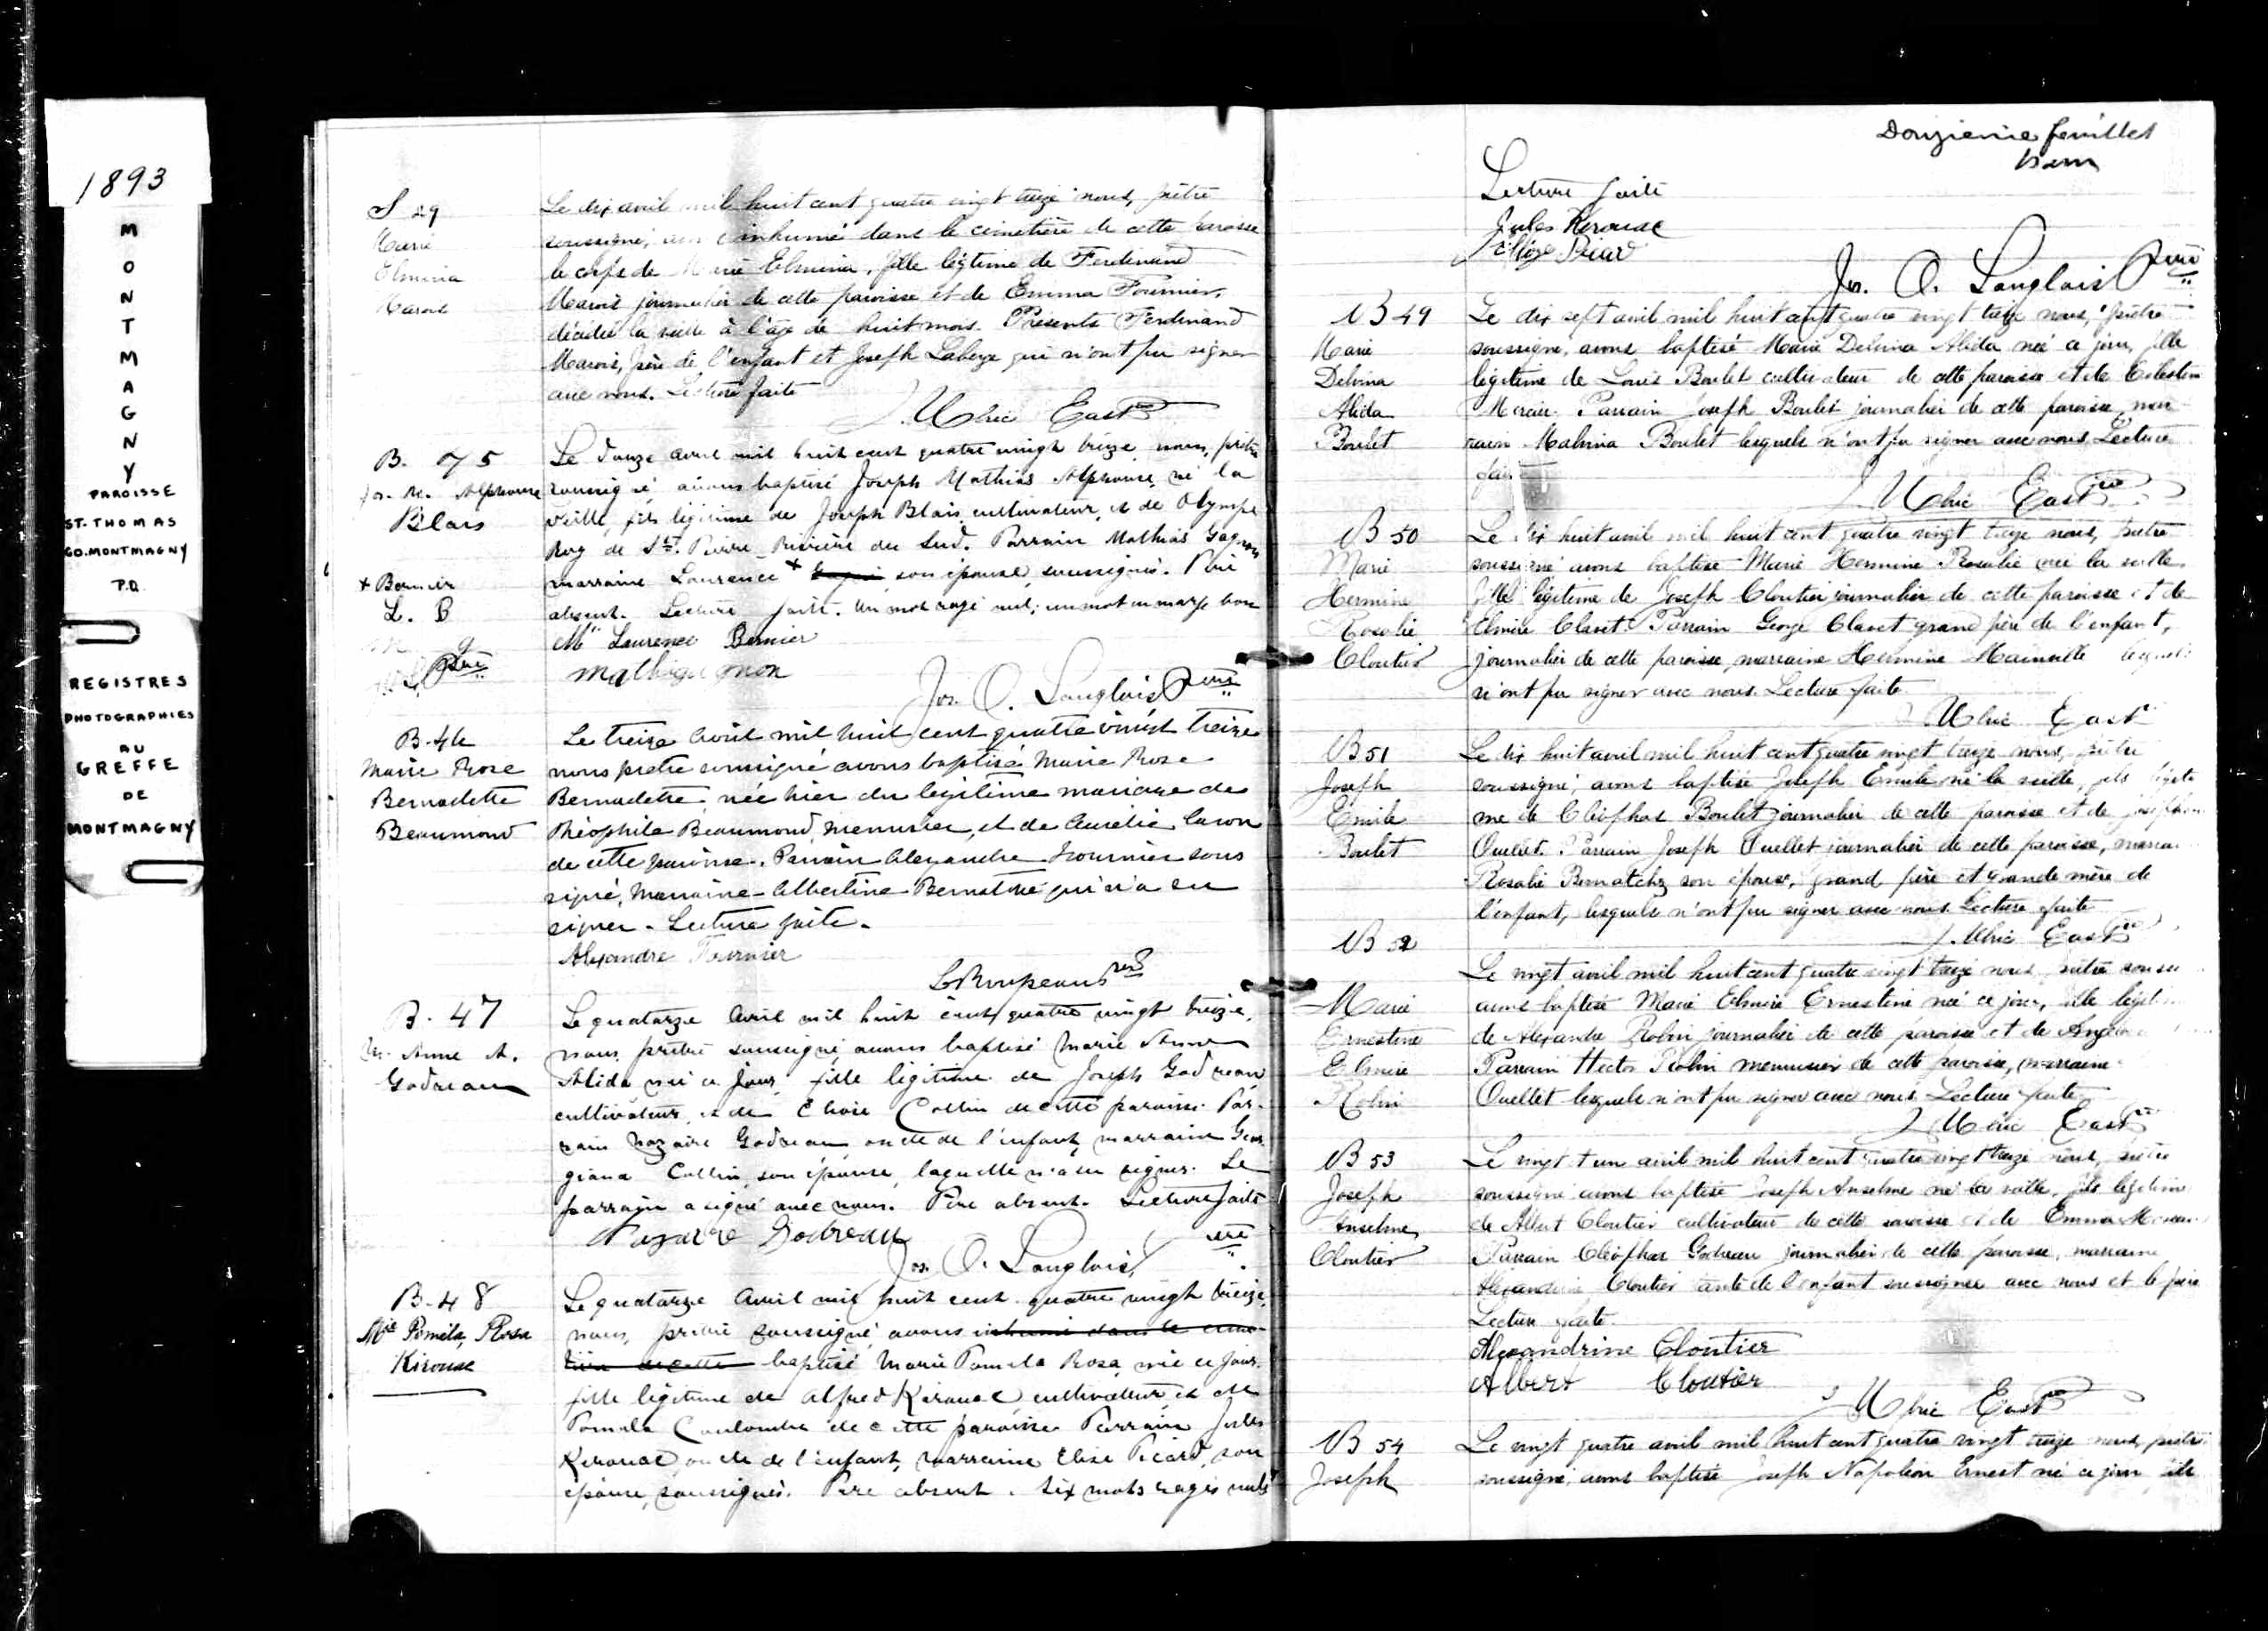 1893
M
O
N
T
M
A
G
N
Y
PAROISSE
ST. THOMAS
CO. MONTMAGNY
P.Q.
REGISTRES
PHOTOGRAPHIES
AU
GREFFE
DE
MONTMAGNY
S 29
Marie
Elmina
Marois
Le dix avril mil huit cent quatre vingt treize nous, prêtre
soussigné, avons inhumé dans le cimetière de cette paroisse
le corps de Marie Elmina, fille légitime de Ferdinand
Marois journalier de cette paroisse et de Emma Fournier,
décédée la veille à l'âge de huit mois. Présents Ferdinand
Marois, père de l'enfant et Joseph Laberge qui n'ont pu signer
avec nous. Lecture faite
J. Ulric East ptre
B. 45
Jos. M. Alphonse
Blais
Le douze avril mil huit cent quatre vingt treize, nous, prêtre
soussigné avons baptisé Joseph Mathias Alphonse, né la
veille, fils légitime de Joseph Blais, cultivateur, et de Olympe
Roy de St. Pierre Rivière du Sud. Parrain Mathias Gagnon
marraine Laurence + son épouse, soussignés. Père
absent. Lecture faite. Un mot rayé nul; un mot en marge bon
+ Bernier
L. B
M. G
Ptre
Me Laurence Bernier
Jos. O. Langlois Ptre
B. 46
Marie Rose
Bernadette
Beaumond
Le treize avril mil huit cent quatre vingt treize
nous prêtre soussigné avons baptisé Marie Rose
Bernadette, née hier du légitime mariage de
Théophile Beaumond, menuisier, et de Aurélie Caron
de cette paroisse. Parrain Alexandre Fournier sous
signé, Marraine Albertine Bernatché qui n'a su
signer. Lecture faite.
Alexandre Fournier
B. 47
M. Anne A.
Godreau
Le quatorze avril mil huit cent quatre vingt treize,
nous, prêtre soussigné, avons baptisé Marie Anne
Alida née ce jour, fille légitime de Joseph Godreau
cultivateur, et de Elisée Collin de cette paroisse. Par-
rain Nazaire Godreau oncle de l'enfant, marraine Geor
giana Collin, son épouse, laquelle n'a su signer. Le
parrain a signé avec nous. Père absent. Lecture faite
Nazaire Godreau
Jos. O. Langlois, ptre
B. 48
Mie Pomela, Rosa
Kirouac
Le quatorze avril mil huit cent quatre vingt treize,
nous, prêtre soussigné, avons inhumé dans le cime-
tière de cette baptisé Marie Pomela Rosa, née ce jour,
fille légitime de Alfred Kirouac, cultivateur, et de
Pomela Coulombe de cette paroisse. Parrain Jules
Kirouac, oncle de l'enfant, marraine Elise Picard, son
épouse, soussignés. Père absent. Six mots rayés nuls
Douzième feuillet
Lecture faite
Jules Kerouac
Elise Picard
Jos. O. Langlois Ptre
B 49
Marie
Delvina
Alida
Boulet
Le dix sept avril mil huit cent quatre vingt treize nous, prêtre
soussigné, avons baptisé Marie Delvina Alida née ce jour, fille
légitime de Louis Boulet cultivateur de cette paroisse et de Celestine
Mercier. Parrain Joseph Boulet journalier de cette paroisse, mar
raine Malvina Boulet lesquels n'ont pu signer avec nous Lecture
fai
J. Ulric East ptre
B 50
Marie
Hermine
Rosalie
Cloutier
Le dix huit avril mil huit cent quatre vingt treize nous, prêtre
soussigné avons baptisé Marie Hermine Rosalie née la veille,
fille légitime de Joseph Cloutier journalier de cette paroisse et de
Elmire Clavet. Parrain George Clavet grand père de l'enfant,
journalier de cette paroisse, marraine Hermine Mainville lesquels
n'ont pu signer avec nous. Lecture faite
J. Ulric East
B 51
Joseph
Emile
Boulet
Le dix huit avril mil huit cent quatre vingt treize nous, prêtre
soussigné, avons baptisé Joseph Emile né la veille, fils légiti
me de Cléophas Boulet journalier de cette paroisse et de Josephine
Ouellet. Parrain Joseph Ouellet journalier de cette paroisse, marrai
Rosalie Bernatchez son épouse, grand père et grande mère de
l'enfant, lesquels n'ont pu signer avec nous. Lecture faite
J. Ulric East ptre
B 52
Marie
Ernestine
Elmire
Robin
Le vingt avril mil huit cent quatre vingt treize nous prêtre soussi
avons baptisé Marie Elmire Ernestine née ce jour, fille légiti
de Alexandre Robin journalier de cette paroisse et de
Parrain Hector Robin menuisier de cette paroisse, marraine
Ouellet lesquels n'ont pu signer avec nous Lecture faite
J. Ulric East ptre
B 53
Joseph
Anselme
Cloutier
Le vingt et un avril mil huit cent quatre vingt treize nous, prêtre
soussigné avons baptisé Joseph Anselme né la veille, fils légitime
de Albert Cloutier cultivateur de cette paroisse et de Emma
Parrain Cléophas Godreau journalier de cette paroisse, marraine
Alexandrine Cloutier tante de l'enfant soussignée avec nous et le père
Lecture faite.
Alexandrine Cloutier
Albert Cloutier
J. Ulric East ptre
B 54
Joseph
Le vingt quatre avril mil huit cent quatre vingt treize nous, prêtre
soussigné, avons baptisé Joseph Napoléon Ernest né ce jour fils